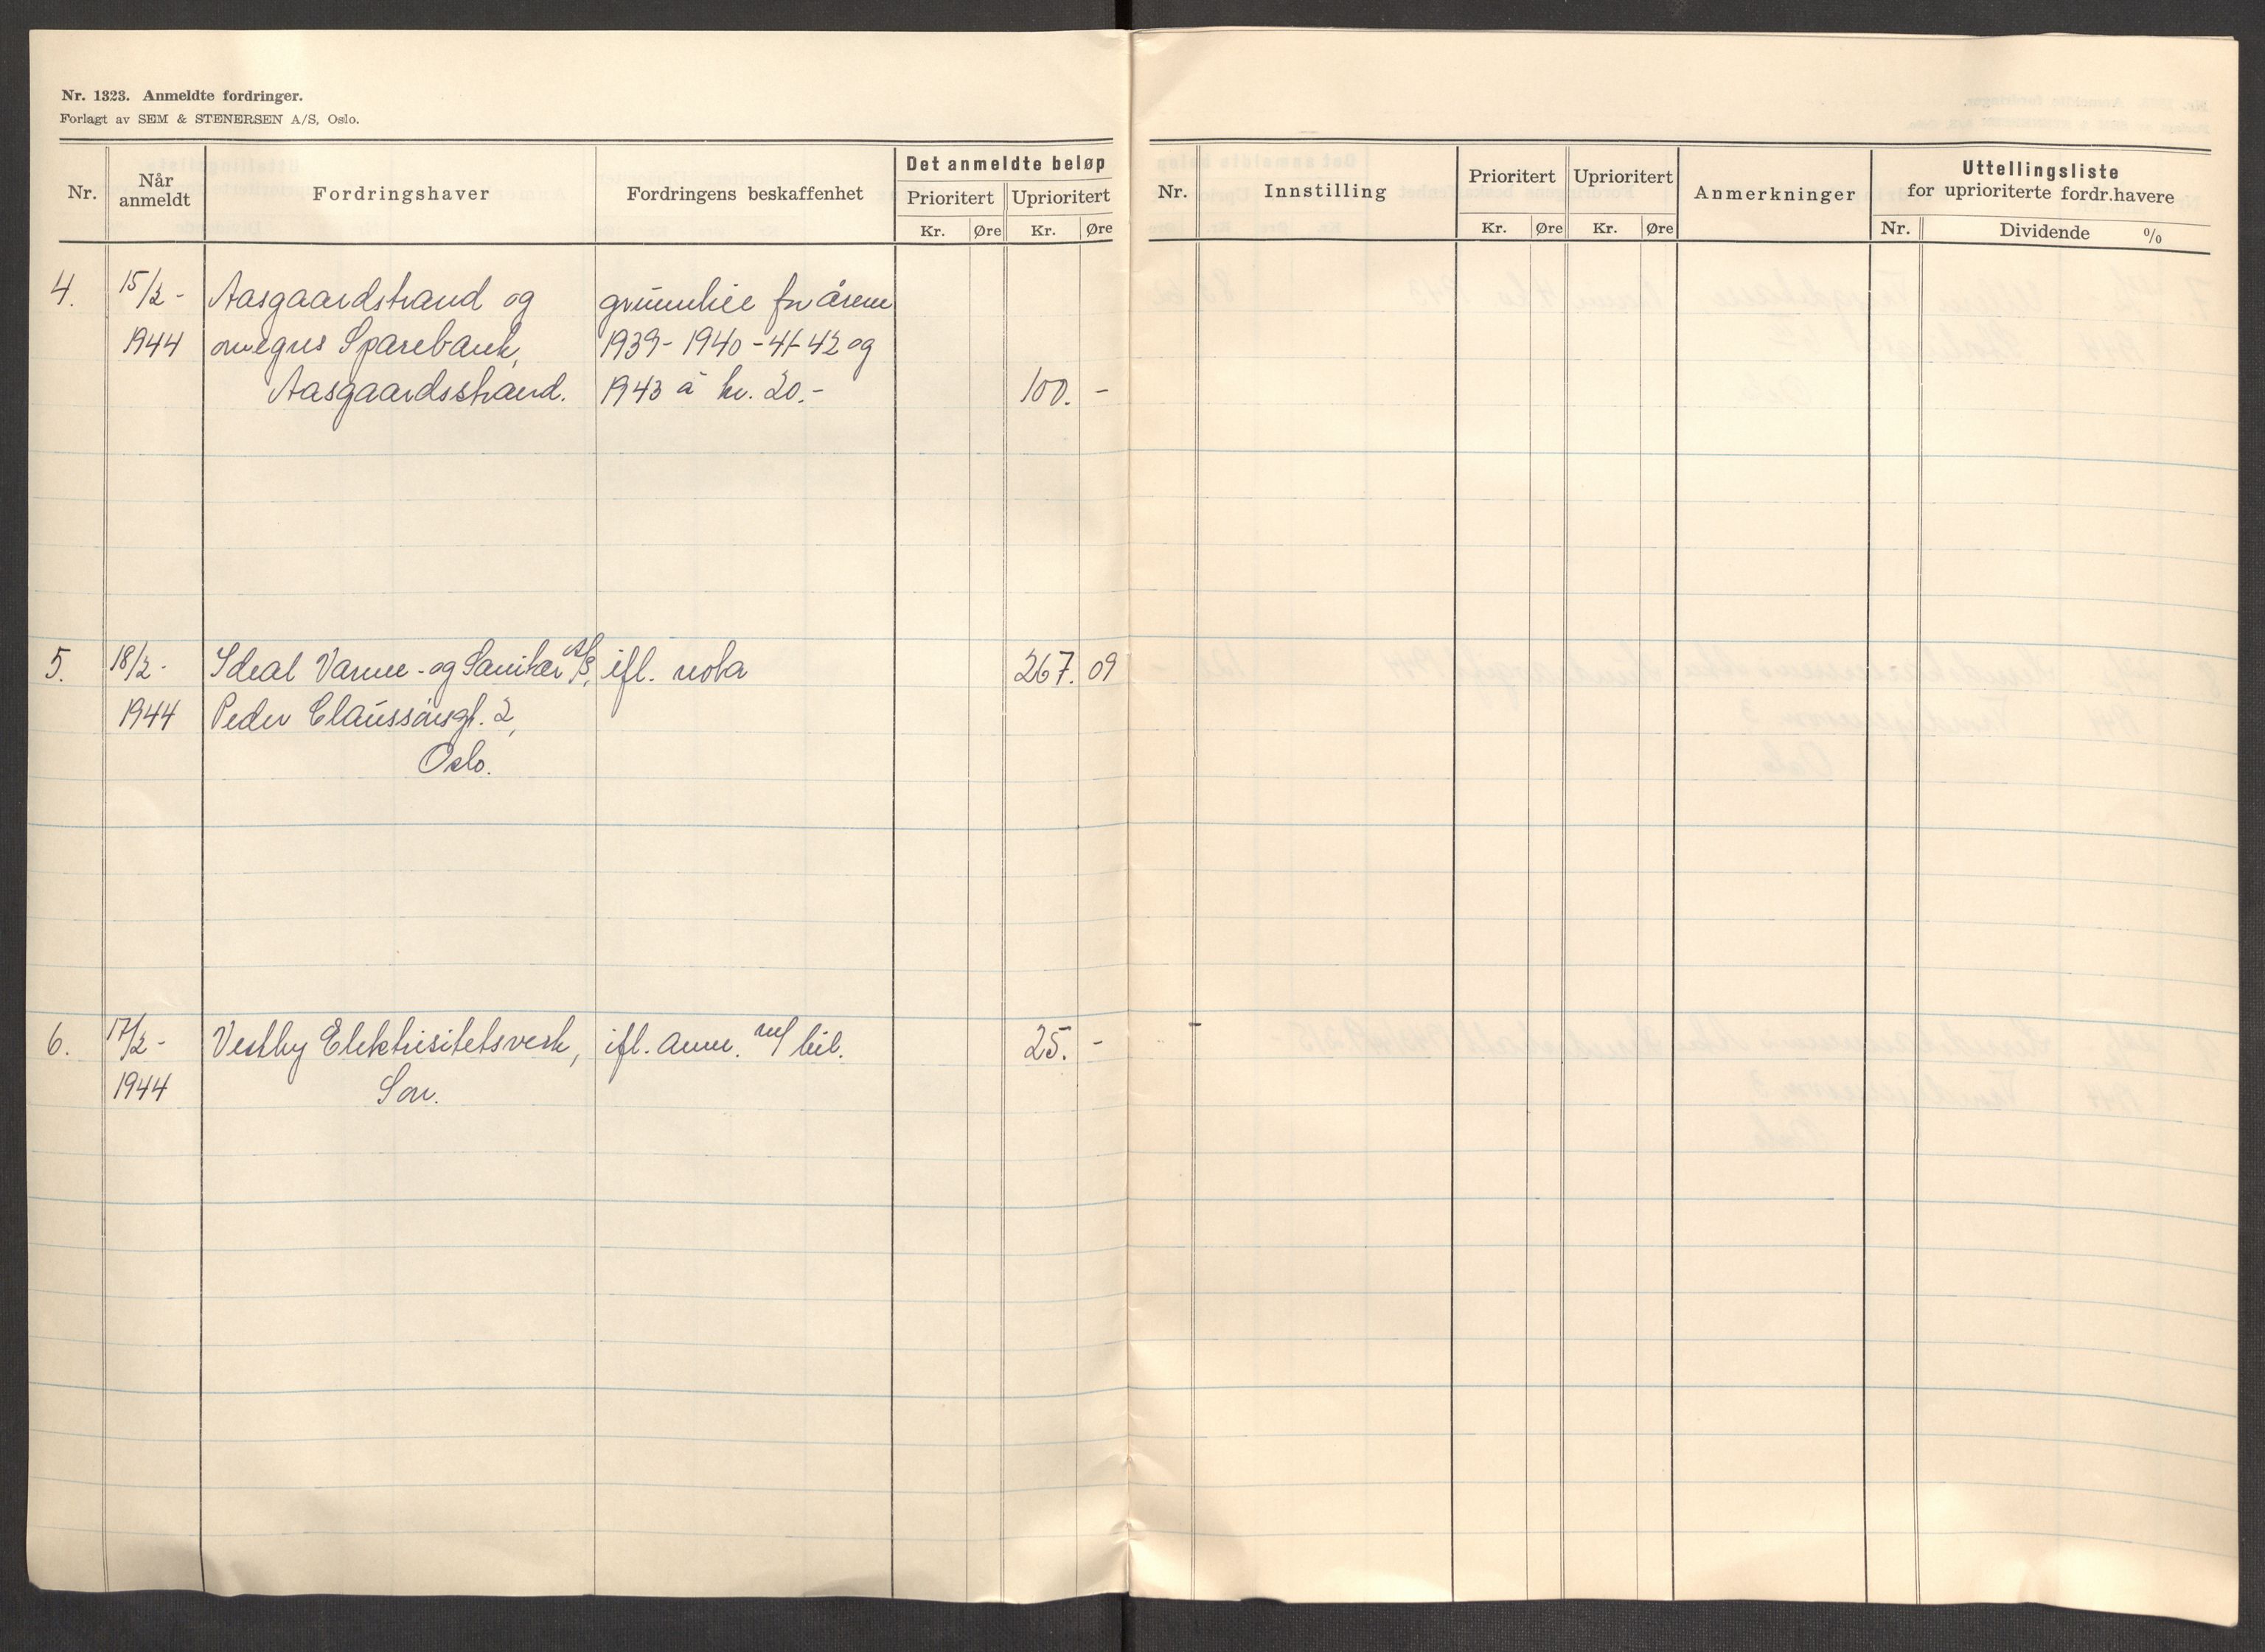 Nr. 1323. Anmeldte fordringer.
Forlagt av SEM & STENERSEN A/S, Oslo.
Nr.
Når anmeldt
Fordringshaver
Fordringens beskaffenhet
Det anmeldte beløp
Prioritert Uprioritert
Kr. Øre Kr. Øre
Nr.
Innstilling
Prioritert Uprioritert
Kr. Øre Kr. Øre
Anmerkninger
Uttellingsliste
for uprioriterte fordr.havere
Nr. Dividende %
4. 15/2- Aasgaardstrand og grunnleie for årene
1944 omegns Sparebank, 1939-1940-41-42 og
Aasgaardsstrand. 1943 à kr. 20.- 100. -
5. 18/2- Ideal Varme- og Sanitær A/S, ifl. nota 267. 09
1944 Peder Claussønsgt. 2,
Oslo.
6. 17/2- Vestby Elektrisitetsverk, ifl. anm. m/ bil. 25. -
1944 Son.